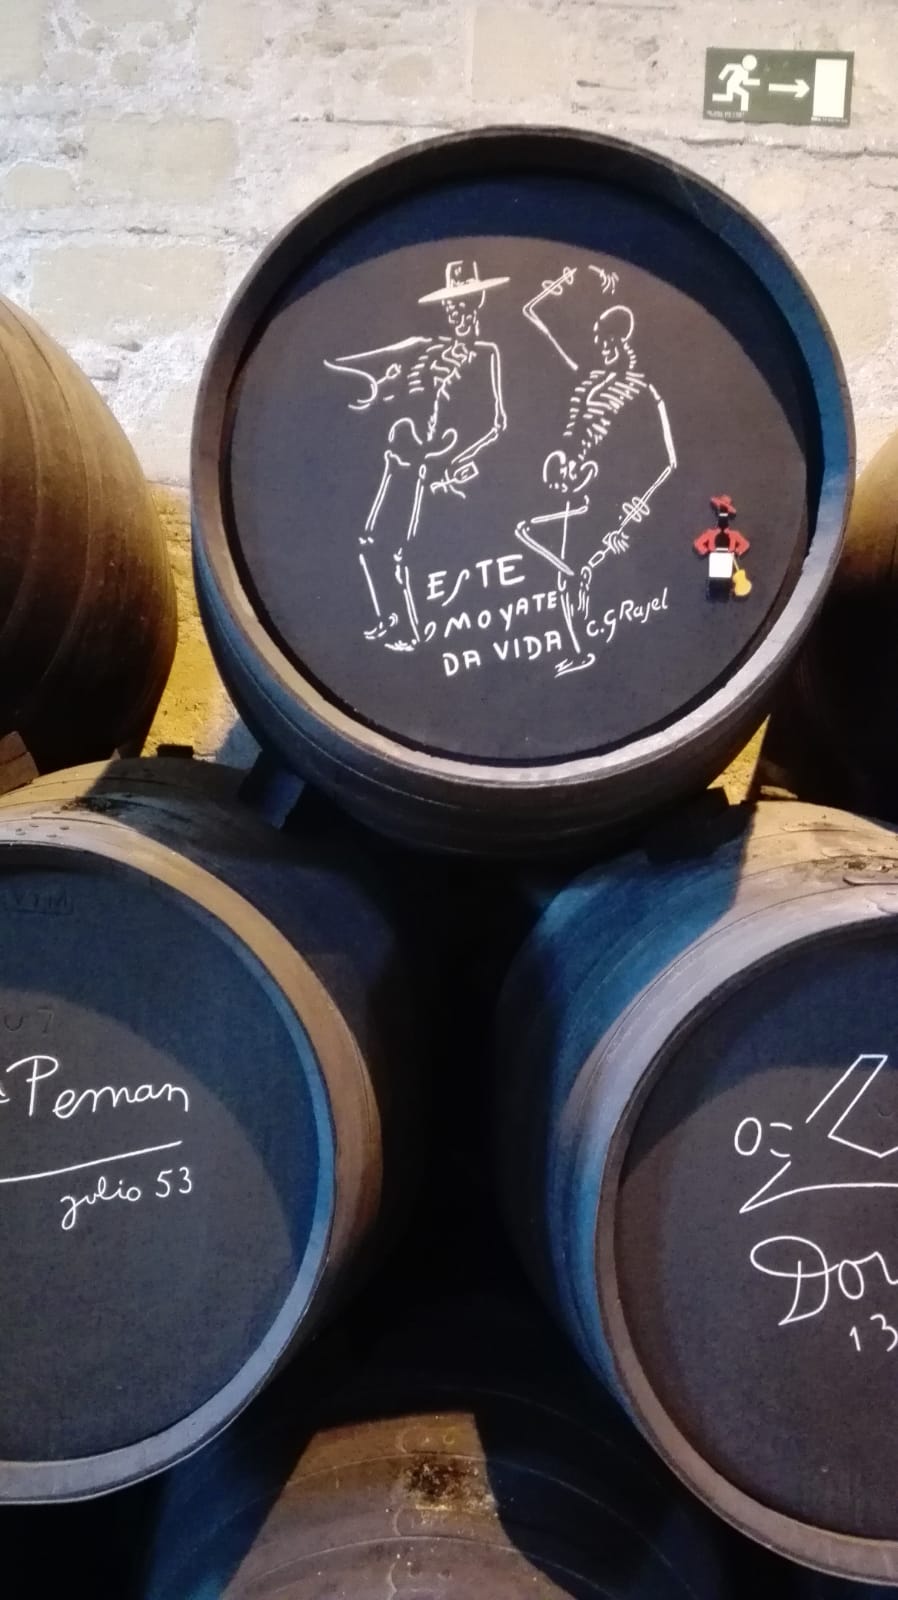 ESTE
MOYATE
DA VIDA
C.G Rajel
Peman
julio 53
13